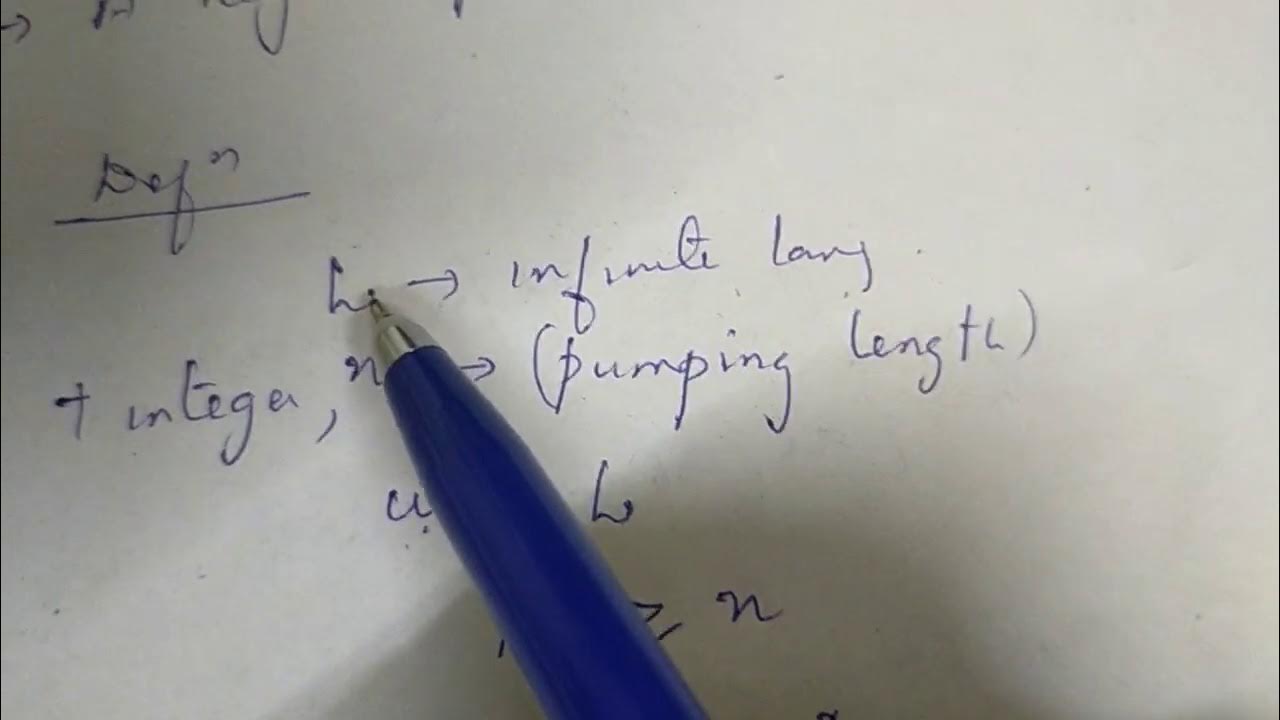 → A
Defⁿ
L → infinite lang.
+ integer, n → (pumping length)
L
≥ n